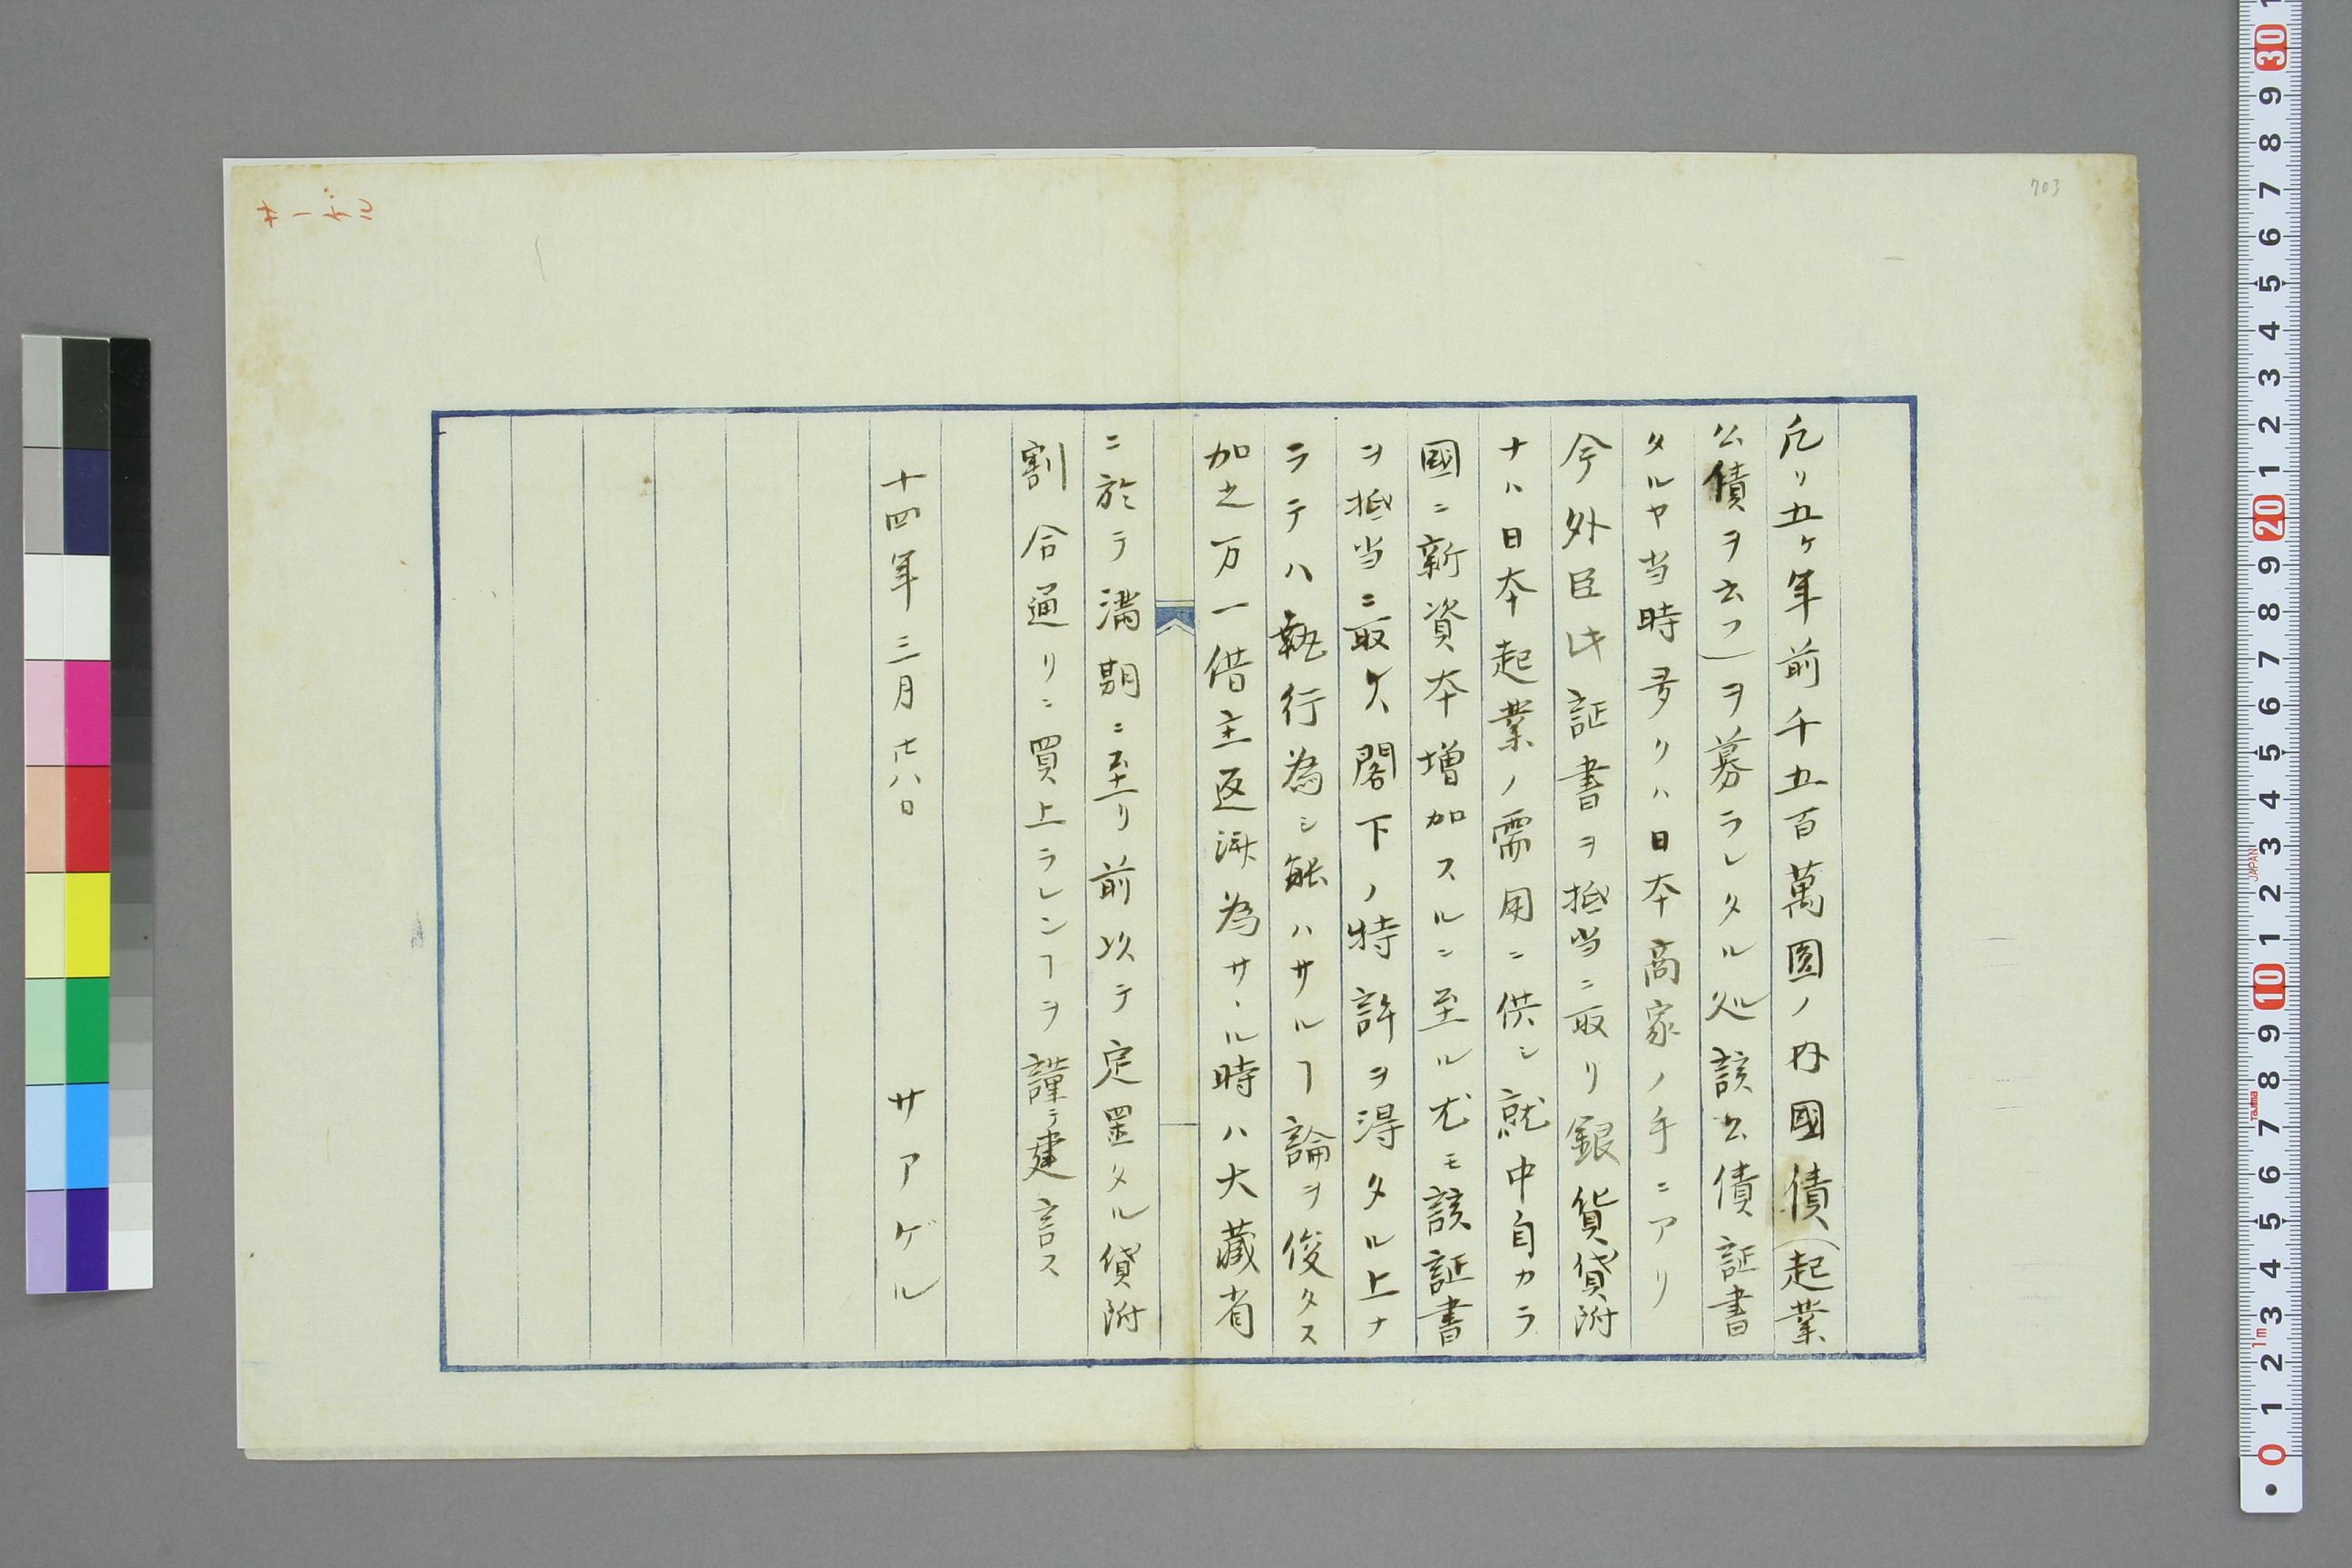 703
凡リ五ケ年前千五百萬圓ノ内國債(起業
公債ヲ云フ)ヲ募ラレタル処該公債証書
タルヤ当時多クハ日本商家ノ手ニアリ
今外臣此証書ヲ抵当ニ取リ銀貨貸附
ナハ日本起業ノ需用ニ供シ就中自カラ
國ニ新資本増加スルニ至ル尤モ該証書
ヲ抵当ニ取ル閣下ノ特許ヲ得タル上ナ
ラテハ執行為シ能ハサルヿ論ヲ俊タス
加之万一借主返済為サヽル時ハ大藏省
ニ於テ満期ニ至リ前以テ定置タル貸附
割合通リニ買上ラレンヿヲ謹テ建言ス
十四年三月廿八日
サアゲル